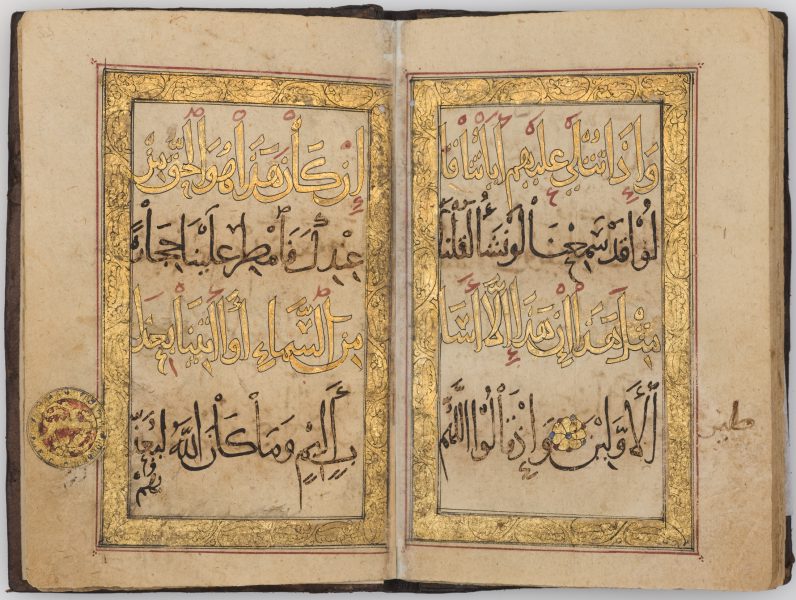 وَإِذَا تُتْلَى عَلَيْهِمْ آيَاتُنَا قَا
لُوا قَدْ سَمِعْنَا لَوْ نَشَاءُ لَقُلْنَا
مِثْلَ هَذَا إِنْ هَذَا إِلَّا أَسَا
طير
الْأَوَّلِينَ وَإِذْ قَالُوا اللَّهُمَّ
إِنْ كَانَ هَذَا هُوَ الْحَقَّ مِنْ
عِنْدِكَ فَأَمْطِرْ عَلَيْنَا حِجَارَةً
مِنَ السَّمَاءِ أَوِ ائْتِنَا بِعَذَا
بٍ أَلِيمٍ وَمَا كَانَ اللَّهُ